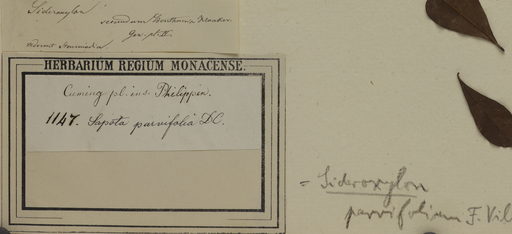 Sideroxylon
secundum Benthamia Hooker
Gen. pl. II.
HERBARIUM REGIUM MONACENSE.
Cuming pl. ins. Philippin.
1147. Sapota parvifolia DC.
= Sideroxylon
parvifolium F. Vil